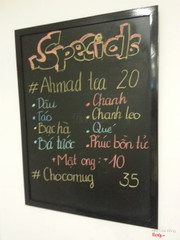 Specials
# Ahmad tea 20
• Dâu • Chanh
• Táo • Chanh leo
• Bạc hà • Quế
• Bá tước • Phúc bồn tử
• Mật ong : +10
# Chocomug 35